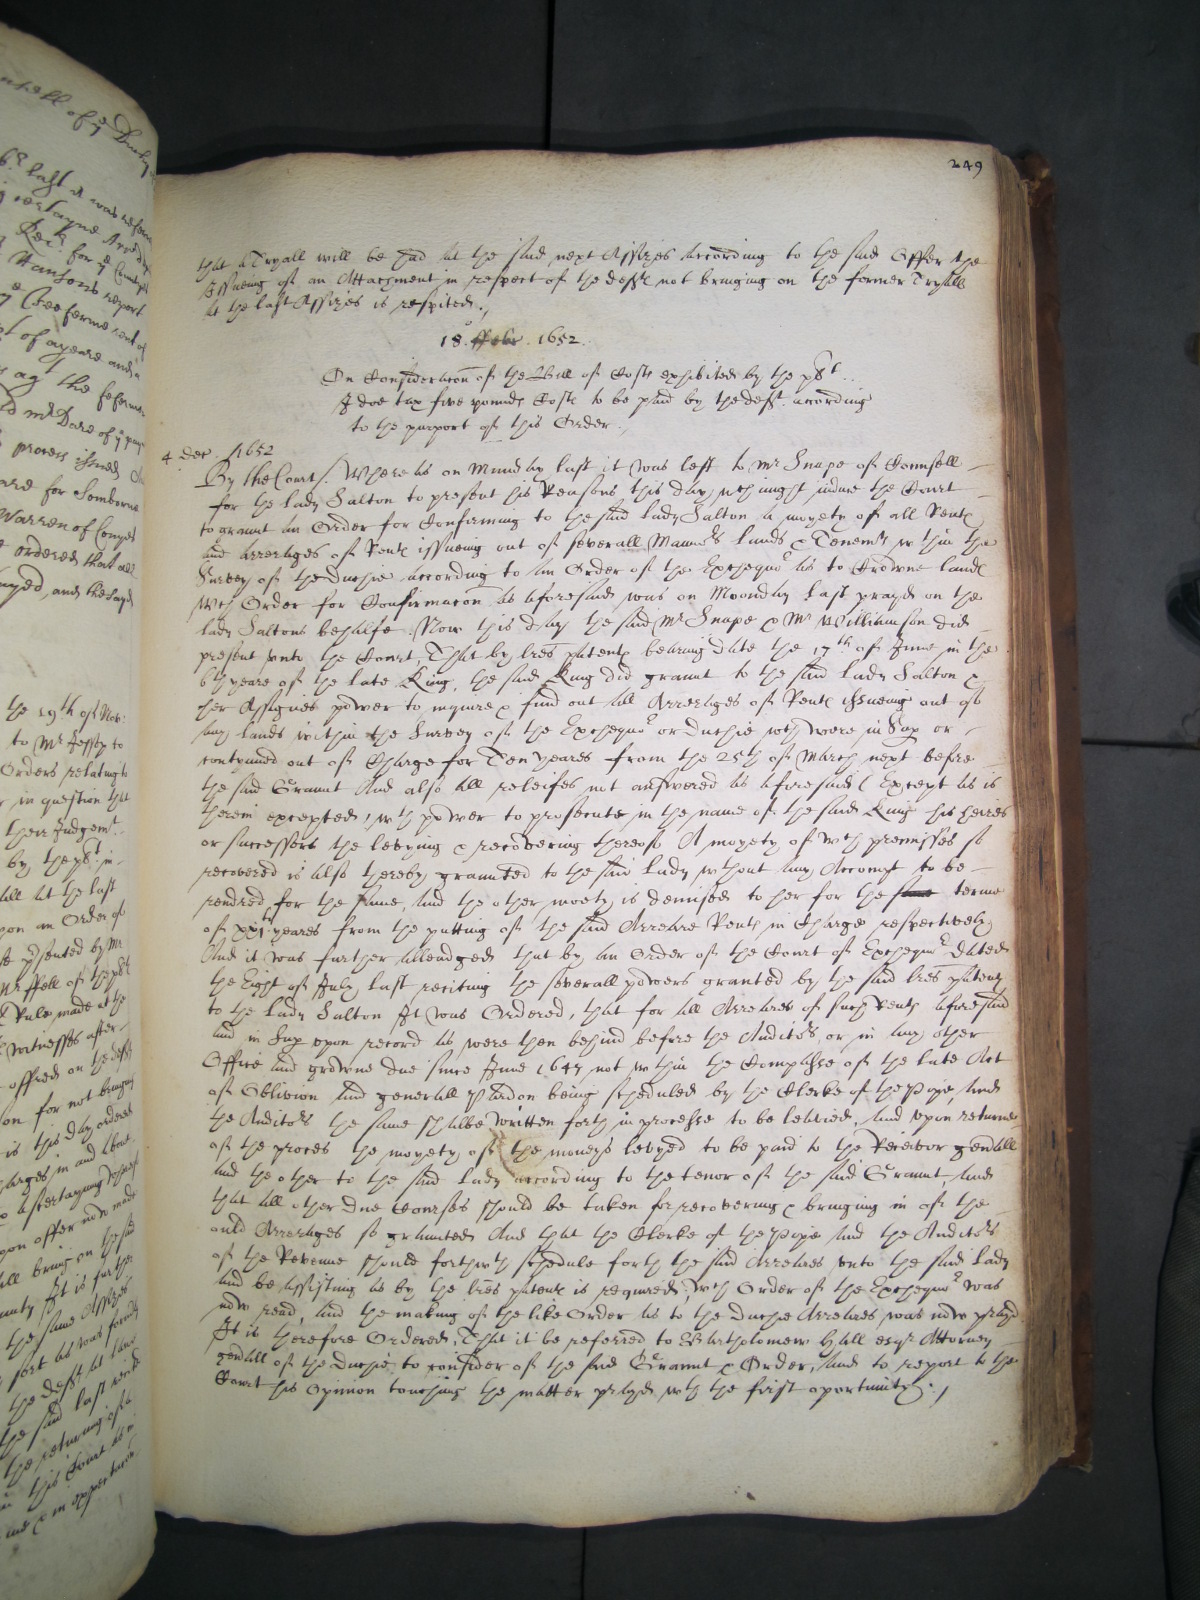 249
that a Tryall will be had at the said next Assizes according to the said Offer the
Issueing of an Attachment in respect of the defts not bringing on the former Tryall
at the last Assizes is respited.
18 ffebr. 1652.
On Consideracon of the Bill of Costs exhibited by the plt
I doe tax five pounds Costs to be paid by the deft according
to the purport of this Order.
4 Dec. 1652
By the Court /. Whereas on Munday last it was left to Mr Snape of Counsell
for the Lady Salton to present his Reasons this day wch might induce the Court
to graunt an Order for Confirming to the said Lady Salton a moyety of all Rents
and Arrerages of Rents issueing out of severall Mannors Lands & Tenemts within the
Survey of the Duchie according to an Order of the Exchequer as to Crowne lands
Wch Order for Confirmacon as aforesaid was on Moonday last prayed on the
Lady Saltons behalfe. Now this day the said Mr Snape & Mr Williamson did
present unto the Court, That by lres patents bearing date the 17th of June in the
6th yeare of the late King, the said King did graunt to the said Lady Salton &
her Assignes power to inquire & find out all Arrerages of Rents issueing out of
any lands within the Survey of the Exchequer or Duchie wch were in Sup or
contynued out of Charge for Ten yeares from the 25th of March next before
the said Graunt And also all releifes not answered as aforesaid (Except as is
therein excepted) wth power to prosecute in the name of the said King his heires
or successors the levying & recovering thereof A moyety of wch premisses so
recovered is also thereby graunted to the said Lady without any Accompt to be
rendred for the same, And the other moety is demised to her for the same terme
of xxi yeares from the putting of the said Arreare Rents in Charge respectively
And it was further alleadged that by an Order of the Court of Exchequer dated
the Eight of July last reciting the severall powers granted by the said lres patents
to the Lady Salton It was Ordered, that for all Arreares of such Rents aforesaid
and in Sup upon record as were then behind before the Auditors or in any other
Office and growne due since June 1645 not within the Compasse of the late Act
of Oblivion and generall Pardon being scheduled by the Clerke of the Pipe, And
the Auditors the same shalbe written forth in processe to be leavied, And upon returne
of the proces the moyety of the moneys levyed to be paid to the Receivor genall
and the other to the said Lady according to the tenor of the said Graunt, And
that all other due Courses should be taken for recovering & bringing in of the
ould Arrerages so graunted And that the Clerke of the Pipe and the Auditors
of the Revenue should forthwth schedule forth the said Arreares unto the said Lady
and be assisting as by the lres patents is required, wch Order of the Exchequer was
now read, and the making of the like Order as to the Duchie Arreares was now prayed
It is therefore Ordered, That it be referred to Bartholomew Hall esqr Attorney
genall of the Duchie to consider of the said Graunt & Order, And to report to the
Court his Opinion touching the matter prayed wth the first oportunity.